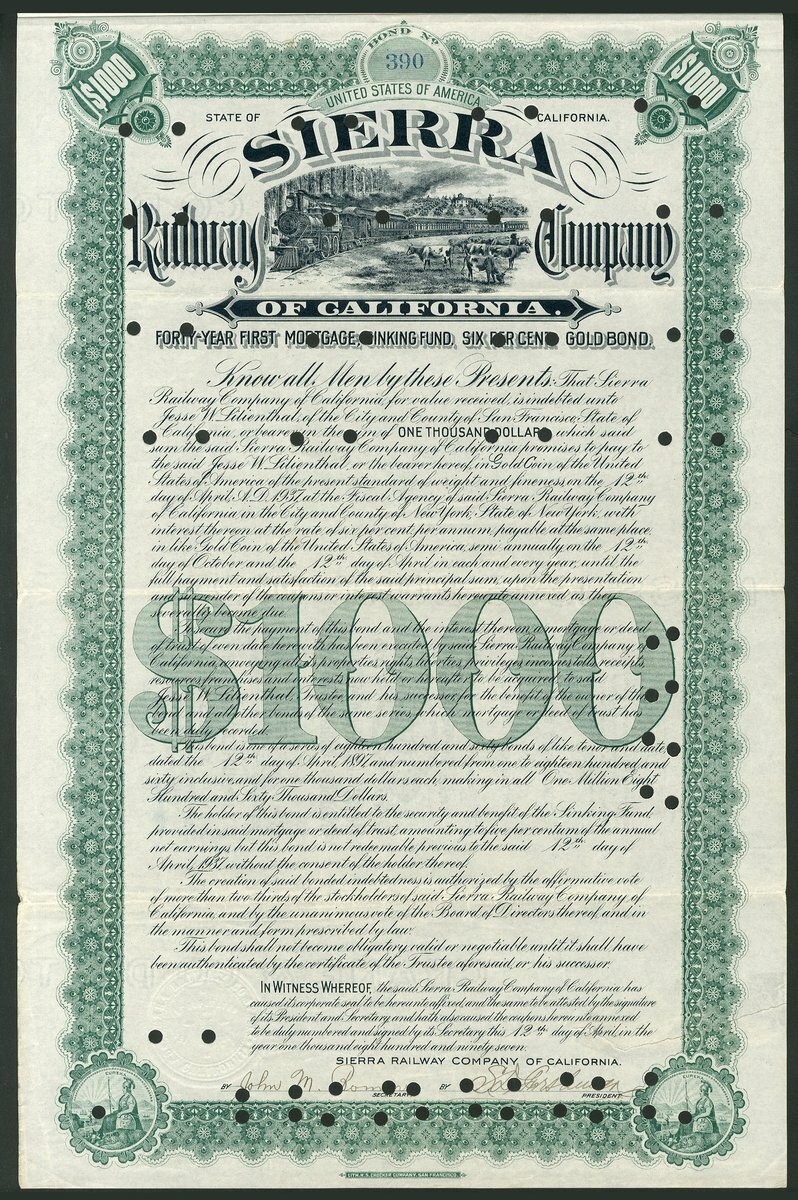 BOND No
390
$1000
$1000
UNITED STATES OF AMERICA
STATE OF
CALIFORNIA.
SIERRA
Railway Company
OF CALIFORNIA.
FORTY-YEAR FIRST MORTGAGE, SINKING FUND, SIX PER CENT. GOLD BOND.
Know all Men by these Presents: That Sierra
Railway Company of California, for value received, is indebted unto
Jesse W. Lilienthal, of the City and County of San Francisco, State of
California, or bearer, in the sum of ONE THOUSAND DOLLARS, which said
sum the said Sierra Railway Company of California promises to pay to
the said Jesse W. Lilienthal, or the bearer hereof, in Gold Coin of the United
States of America of the present standard of weight and fineness on the 12th
day of April, A.D. 1937, at the Fiscal Agency of said Sierra Railway Company
of California in the City and County of New York, State of New York, with
interest thereon at the rate of six per cent. per annum, payable at the same place
in like Gold Coin of the United States of America, semi-annually on the 12th
day of October and the 12th day of April in each and every year, until the
full payment and satisfaction of the said principal sum, upon the presentation
and surrender of the coupons or interest warrants hereunto annexed as they
severally become due.
To secure the payment of this bond and the interest thereon, a mortgage or deed
of trust of even date herewith has been executed by said Sierra Railway Company of
California, conveying all its properties, rights, liberties, privileges, incomes, tolls, receipts,
resources, franchises and interests now held or hereafter to be acquired, to said
Jesse W. Lilienthal, Trustee, and his successor, for the benefit of the owner of this
bond and all other bonds of the same series which mortgage or deed of trust has
been duly recorded.
$1000
This bond is one of a series of eighteen hundred and sixty bonds of like tenor and date,
dated the 12th day of April, 1897, and numbered from one to eighteen hundred and
sixty inclusive, and for one thousand dollars each, making in all One Million Eight
Hundred and Sixty Thousand Dollars.
The holder of this bond is entitled to the security and benefit of the Sinking Fund
provided in said mortgage or deed of trust, amounting to five per centum of the annual
net earnings, but this bond is not redeemable previous to the said 12th day of
April, 1937, without the consent of the holder thereof.
The creation of said bonded indebtedness is authorized by the affirmative vote
of more than two-thirds of the stockholders of said Sierra Railway Company of
California, and by the unanimous vote of the Board of Directors thereof, and in
the manner and form prescribed by law.
This bond shall not become obligatory, valid or negotiable until it shall have
been authenticated by the certificate of the Trustee aforesaid, or his successor.
IN WITNESS WHEREOF, the said Sierra Railway Company of California has
caused its corporate seal to be hereunto affixed, and the same to be attested by the signature
of its President and Secretary, and hath also caused the coupons hereunto annexed
to be duly numbered and signed by its Secretary this 12th day of April, in the
year one thousand eight hundred and ninety seven.
SIERRA RAILWAY COMPANY OF CALIFORNIA.
BY John M.
SECRETARY
BY
PRESIDENT
EUREKA
EUREKA
LITH. H. S. CROCKER COMPANY, SAN FRANCISCO.